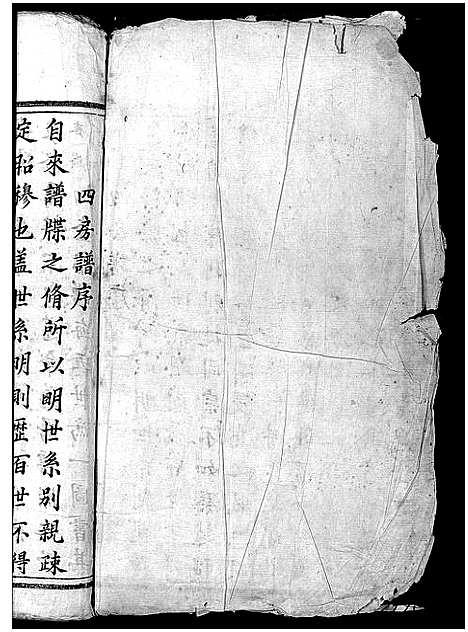 四房譜序
自來譜牒之脩所以明世系別親疎
定昭穆也盖世系明則歷百世不得